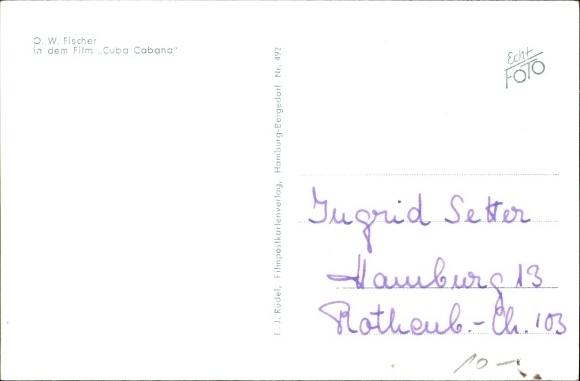 O. W. Fischer
in dem Film „Cuba Cabana"
F. J. Rüdel, Filmpostkartenverlag, Hamburg-Bergedorf Nr. 492
Echt
FOTO
Ingrid Setter
Hamburg 13
Rothenb.-Ch. 103
10-